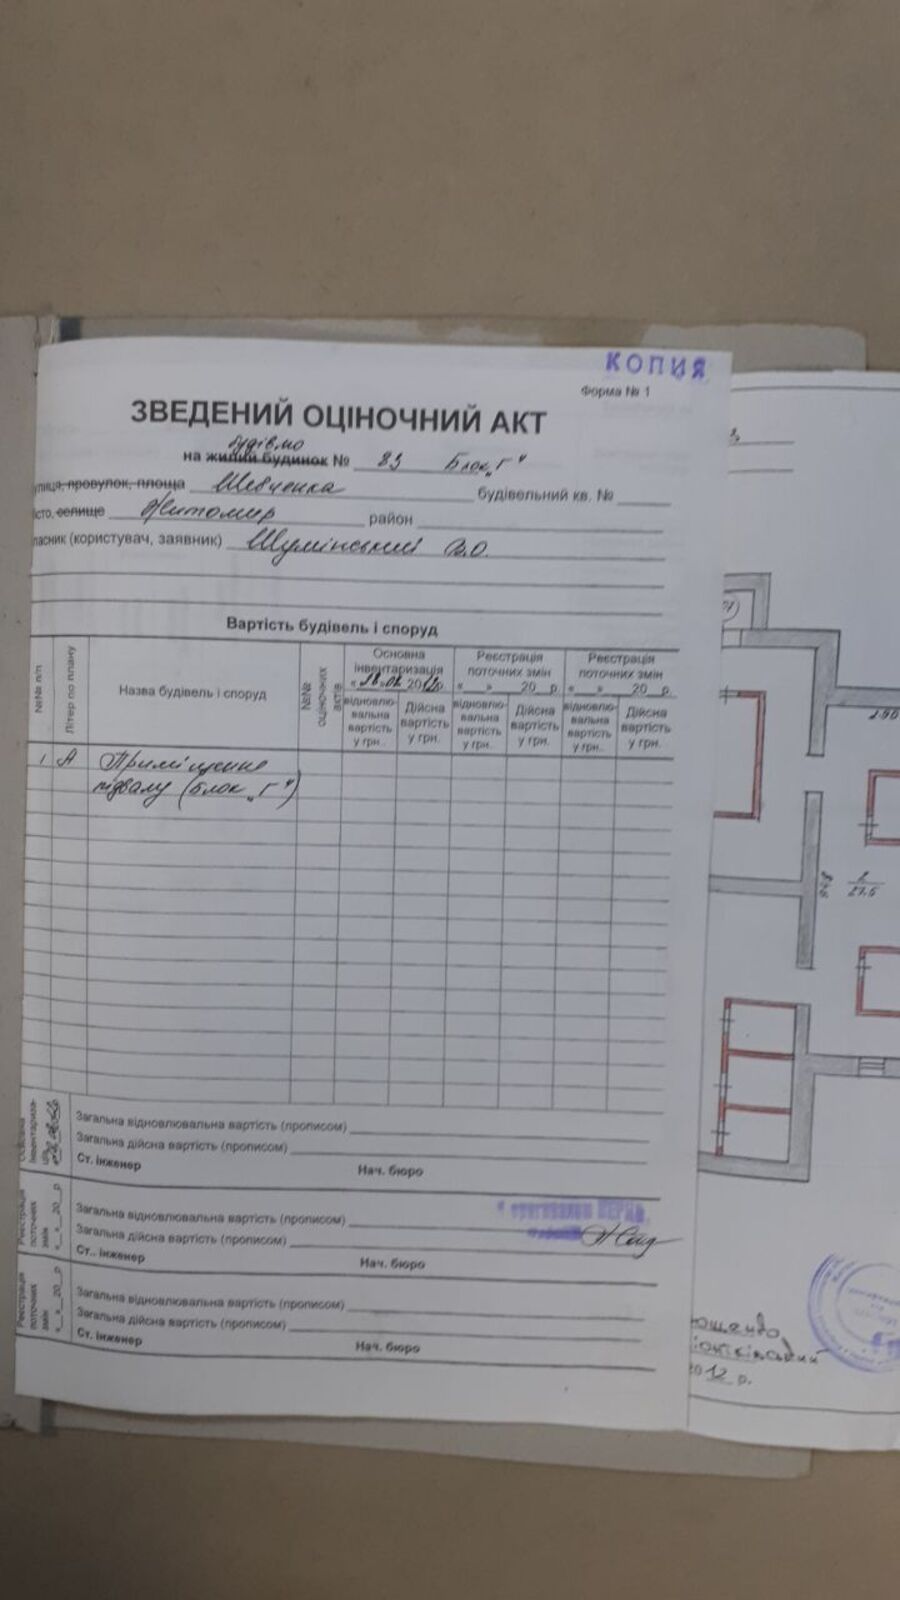 КОПИЯ
Форма № 1
ЗВЕДЕНИЙ ОЦІНОЧНИЙ АКТ
на жилий будинок № 83 Блок „Г"
улиця, провулок, площа Шевченка будівельний кв. №
істо, селище Житомир район
ласник (користувач, заявник) Шумінський В.О.
Вартість будівель і споруд
№№ п/п
Літер по плану
Назва будівель і споруд
№№ оціночних актів
Основна інвентаризація
2012р.
Реєстрація поточних змін
« » 20 р
Реєстрація поточних змін
« » 20 р
відновлювальна вартість у грн.
Дійсна вартість у грн.
відновлювальна вартість у грн.
Дійсна вартість у грн.
відновлювальна вартість у грн.
Дійсна вартість у грн.
1 А Приміщення
підвалу (Блок „Г")
Основна інвентариза-
Загальна відновлювальна вартість (прописом)
Загальна дійсна вартість (прописом)
Ст. інженер Нач. бюро
Реєстрація поточних змін « » 20 р
Загальна відновлювальна вартість (прописом)
Загальна дійсна вартість (прописом)
Ст.. інженер Нач. бюро
Реєстрація поточних змін « » 20 р
Загальна відновлювальна вартість (прописом)
Загальна дійсна вартість (прописом)
Ст. інженер Нач. бюро
2
27.5
2012 р.